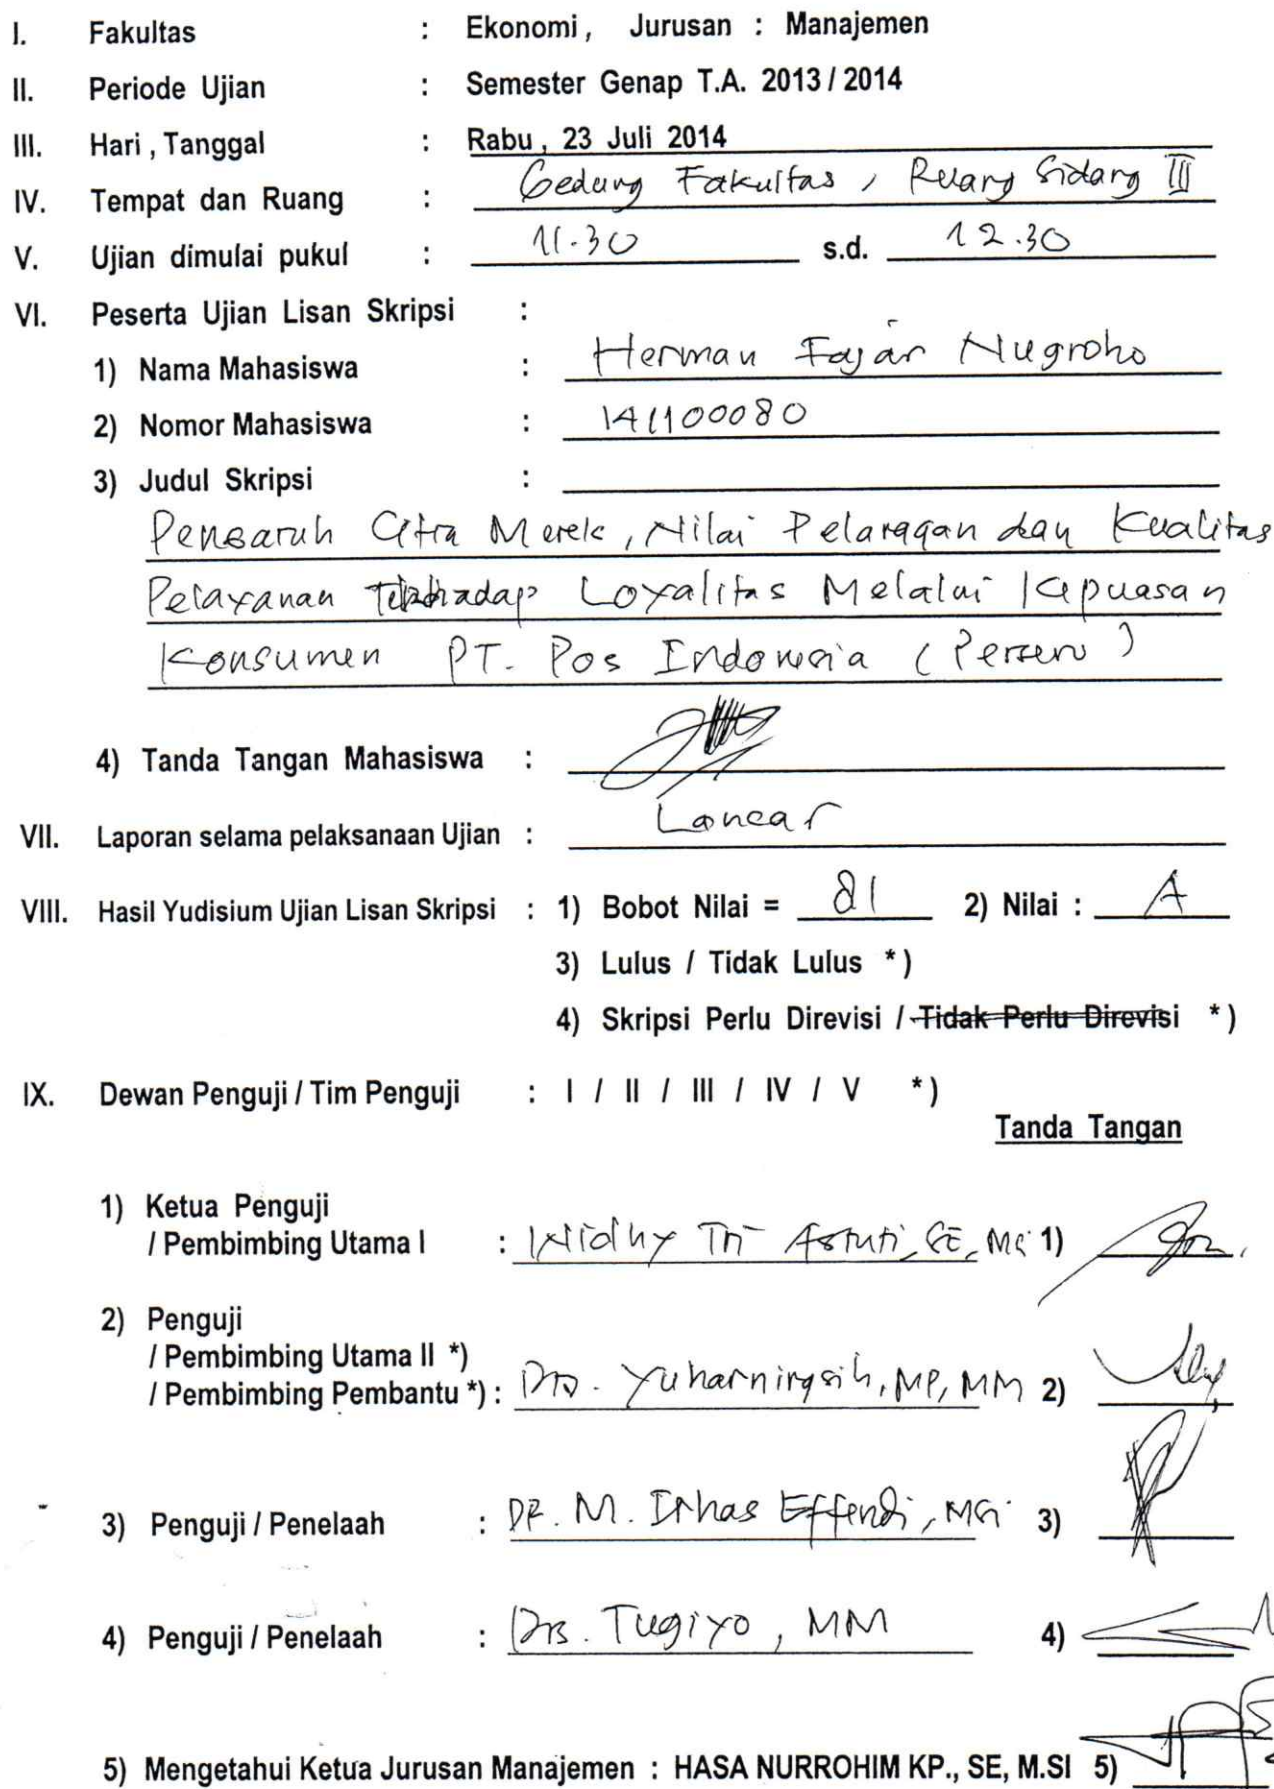 I. Fakultas : Ekonomi, Jurusan : Manajemen
II. Periode Ujian : Semester Genap T.A. 2013 / 2014
III. Hari , Tanggal : Rabu , 23 Juli 2014
IV. Tempat dan Ruang : Gedung Fakultas , Ruang Sidang III
V. Ujian dimulai pukul : 11.30 s.d. 12.30
VI. Peserta Ujian Lisan Skripsi :
1) Nama Mahasiswa : Herman Fajar Nugroho
2) Nomor Mahasiswa : 141100080
3) Judul Skripsi :
Pengaruh Citra Merek, Nilai Pelanggan dan Kualitas
Pelayanan Terhadap Loyalitas Melalui Kepuasan
Konsumen PT. Pos Indonesia (Persero)
4) Tanda Tangan Mahasiswa :
VII. Laporan selama pelaksanaan Ujian : Lancar
VIII. Hasil Yudisium Ujian Lisan Skripsi : 1) Bobot Nilai = 81 2) Nilai : A
3) Lulus / Tidak Lulus *)
4) Skripsi Perlu Direvisi / Tidak Perlu Direvisi *)
IX. Dewan Penguji / Tim Penguji : I / II / III / IV / V *)
Tanda Tangan
1) Ketua Penguji
/ Pembimbing Utama I : Widhy Tri Astuti, SE, MSi 1)
2) Penguji
/ Pembimbing Utama II *)
/ Pembimbing Pembantu *) : Dra. Yuharningsih, MP, MM 2)
3) Penguji / Penelaah : DR. M. Irhas Effendi, MSi 3)
4) Penguji / Penelaah : Drs. Tugiyo, MM 4)
5) Mengetahui Ketua Jurusan Manajemen : HASA NURROHIM KP., SE, M.SI 5)